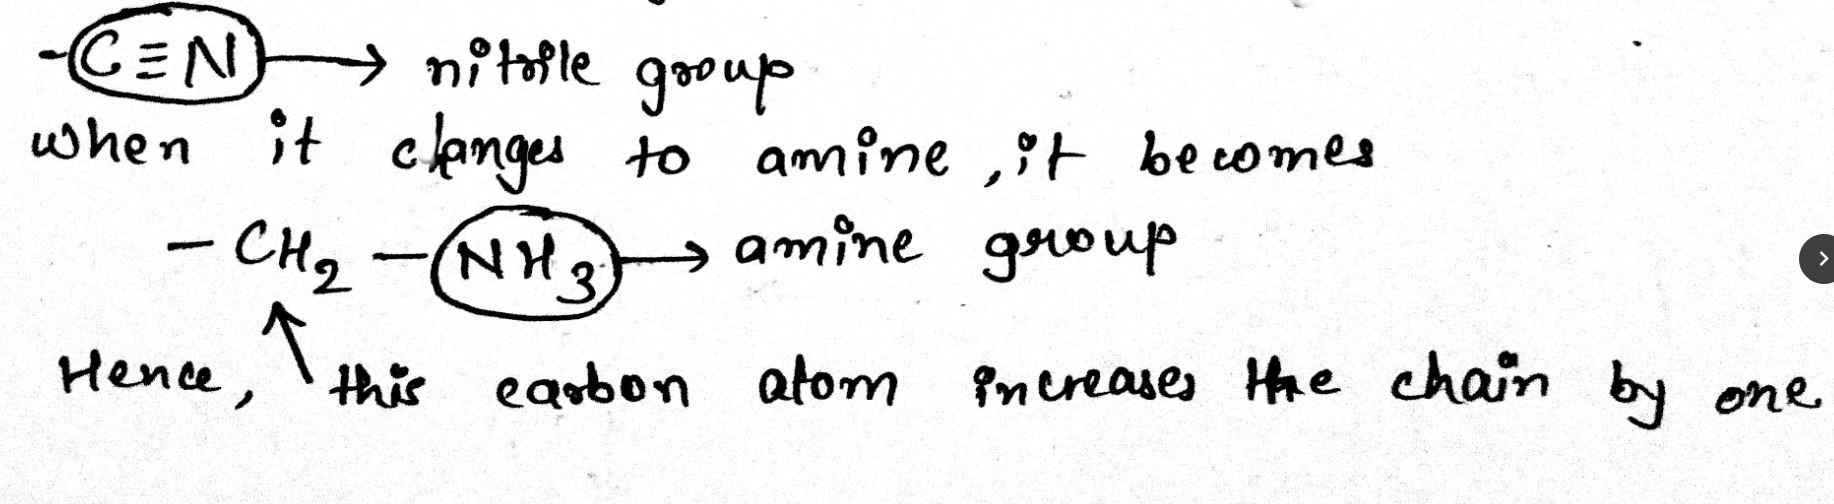 -C≡N → nitrile group
when it changes to amine, it becomes
- CH2 - NH3 → amine group
Hence, this carbon atom increases the chain by one